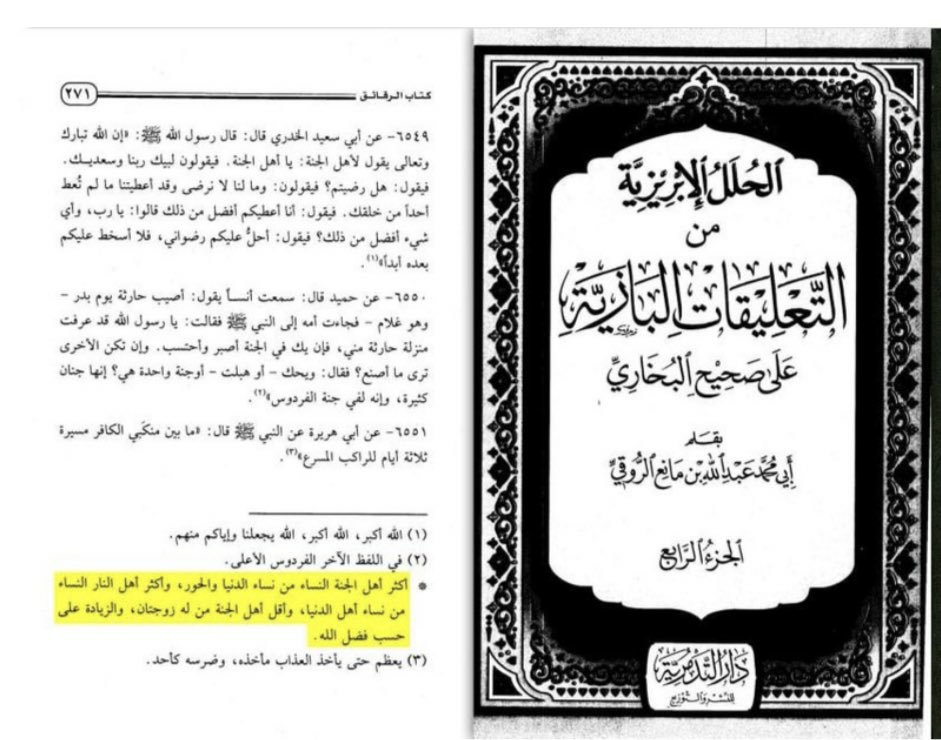 كتاب الرقائق
٢٧١
٦٥٤٩- عن أبي سعيد الخدري قال: قال رسول الله ﷺ: «إن الله تبارك
وتعالى يقول لأهل الجنة: يا أهل الجنة. فيقولون لبيك ربنا وسعديك.
فيقول: هل رضيتم؟ فيقولون: وما لنا لا نرضى وقد أعطيتنا ما لم تُعط
أحداً من خلقك. فيقول: أنا أعطيكم أفضل من ذلك قالوا: يا رب، وأي
شيء أفضل من ذلك؟ فيقول: أحلُّ عليكم رضواني، فلا أسخط عليكم
بعده أبداً»(١).
٦٥٥٠- عن حميد قال: سمعت أنساً يقول: أصيب حارثة يوم بدر -
وهو غلام - فجاءت أمه إلى النبي ﷺ فقالت: يا رسول الله قد عرفت
منزلة حارثة مني، فإن يك في الجنة أصبر وأحتسب. وإن تكن الأخرى
ترى ما أصنع؟ فقال: ويحك - أو هبلت - أوجنة واحدة هي؟ إنها جنان
كثيرة، وإنه لفي جنة الفردوس»(٢).
٦٥٥١- عن أبي هريرة عن النبي ﷺ قال: «ما بين منكَبي الكافر مسيرة
ثلاثة أيام للراكب المسرع»(٣).
(١) الله أكبر، الله أكبر، الله يجعلنا وإياكم منهم.
(٢) في اللفظ الآخر الفردوس الأعلى.
* أكثر أهل الجنة النساء من نساء الدنيا والحور، وأكثر أهل النار النساء
من نساء أهل الدنيا، وأقل أهل الجنة من له زوجتان، والزيادة على
حسب فضل الله.
(٣) يعظم حتى يأخذ العذاب مأخذه، وضرسه كأحد.
الحُلَلُ الإِبْرِيزِيَّة
من
التَّعْلِيقَاتِ البَازِيَّة
عَلَى صَحِيحِ البُخَارِيِّ
بقلم
أبي مُحَمَّد عَبْد اللَّه بن مَانِع الرُّوقِيّ
الجزءُ الرَّابع
دَارُ التَّدْمُرِيَّة
للنشر والتوزيع